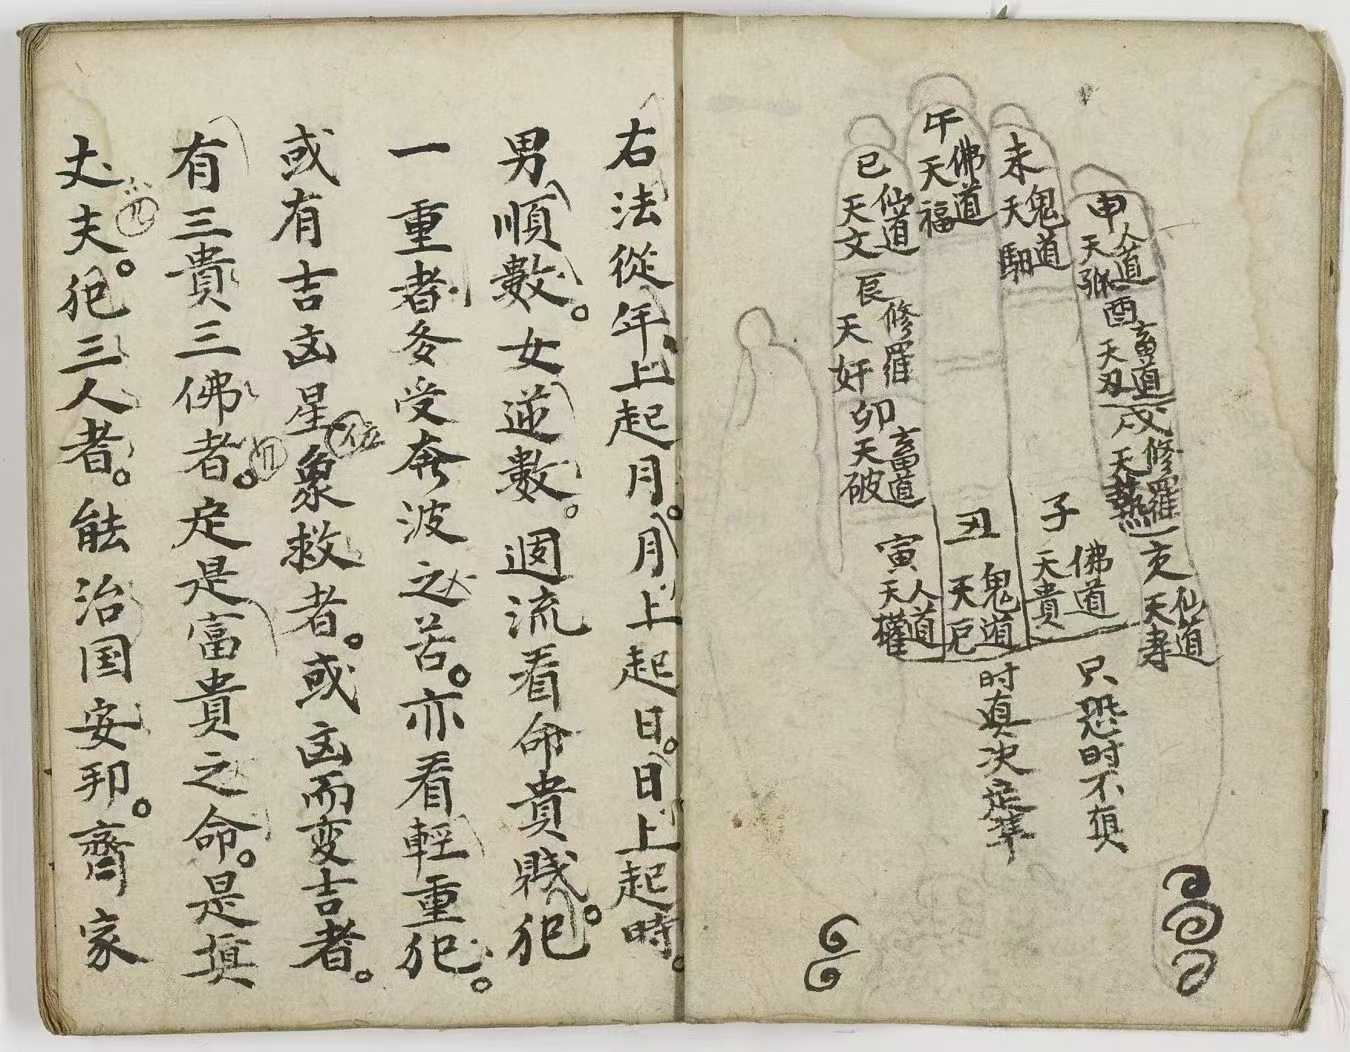 午
佛道
天福
未
鬼道
天馹
巳
仙道
天文
申
人道
天孤
辰
修羅
天奸
酉
畜道
天刃
卯
畜道
天破
戌
修羅
天藝
寅
人道
天權
丑
鬼道
天厄
子
佛道
天貴
亥
仙道
天寿
只恐时不真
时真决定準
右法從年上起月。月上起日。日上起時。
男順數。女逆數。週流看命貴賤。犯
一重者多受奔波之苦。亦看輕重犯。
或有吉凶星象救者。或凶而变吉者。
有三貴三佛者。定是富貴之命。是真
丈夫。犯三人者。能治国安邦。齊家